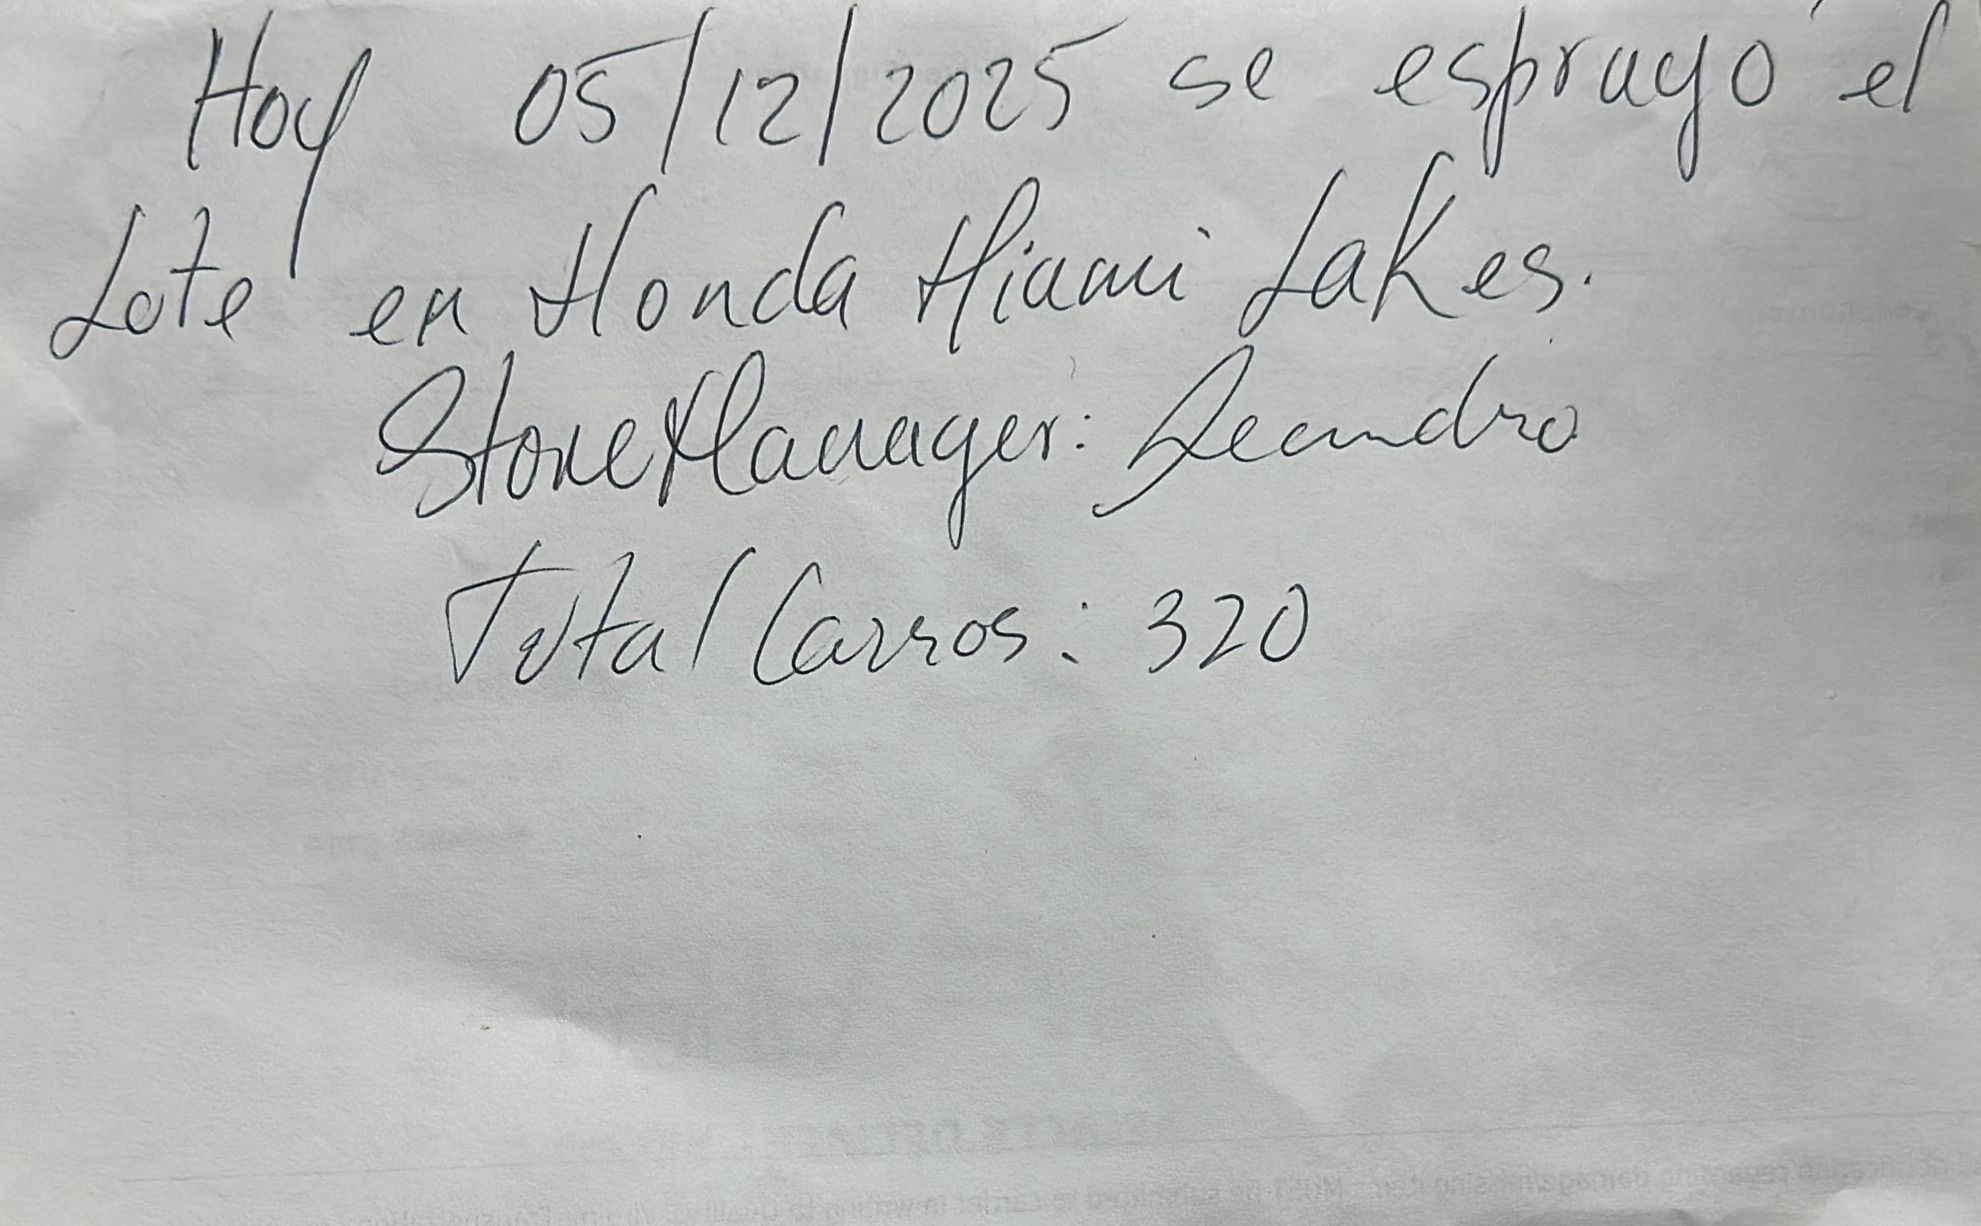 Hoy 05/12/2025 se esprayó el
Lote en Honda Miami Lakes.
Store Manager: Leandro
Total Carros: 320